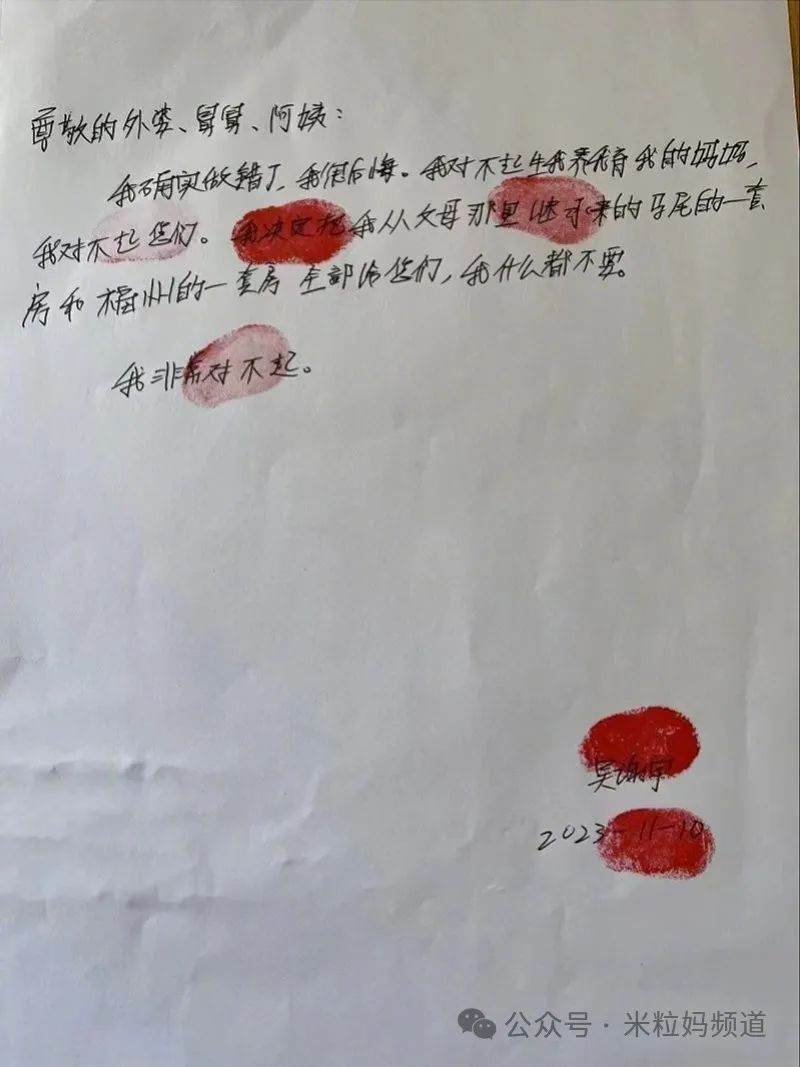 尊敬的外婆、舅舅、阿姨：
我确实做错了，我很后悔。我对不起生我养我育我的妈妈，
我对不起您们。我决定把我从父母那里继承来的马尾的一套
房和福州的一套房全部给您们，我什么都不要。
我非常对不起。
吴谢宇
2023-11-10
公众号·米粒妈频道